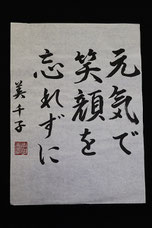 元気で
笑顔を
忘れずに
美千子